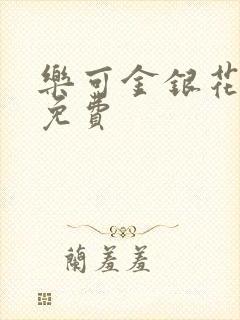 樂可金銀花
免費
蘭羞羞